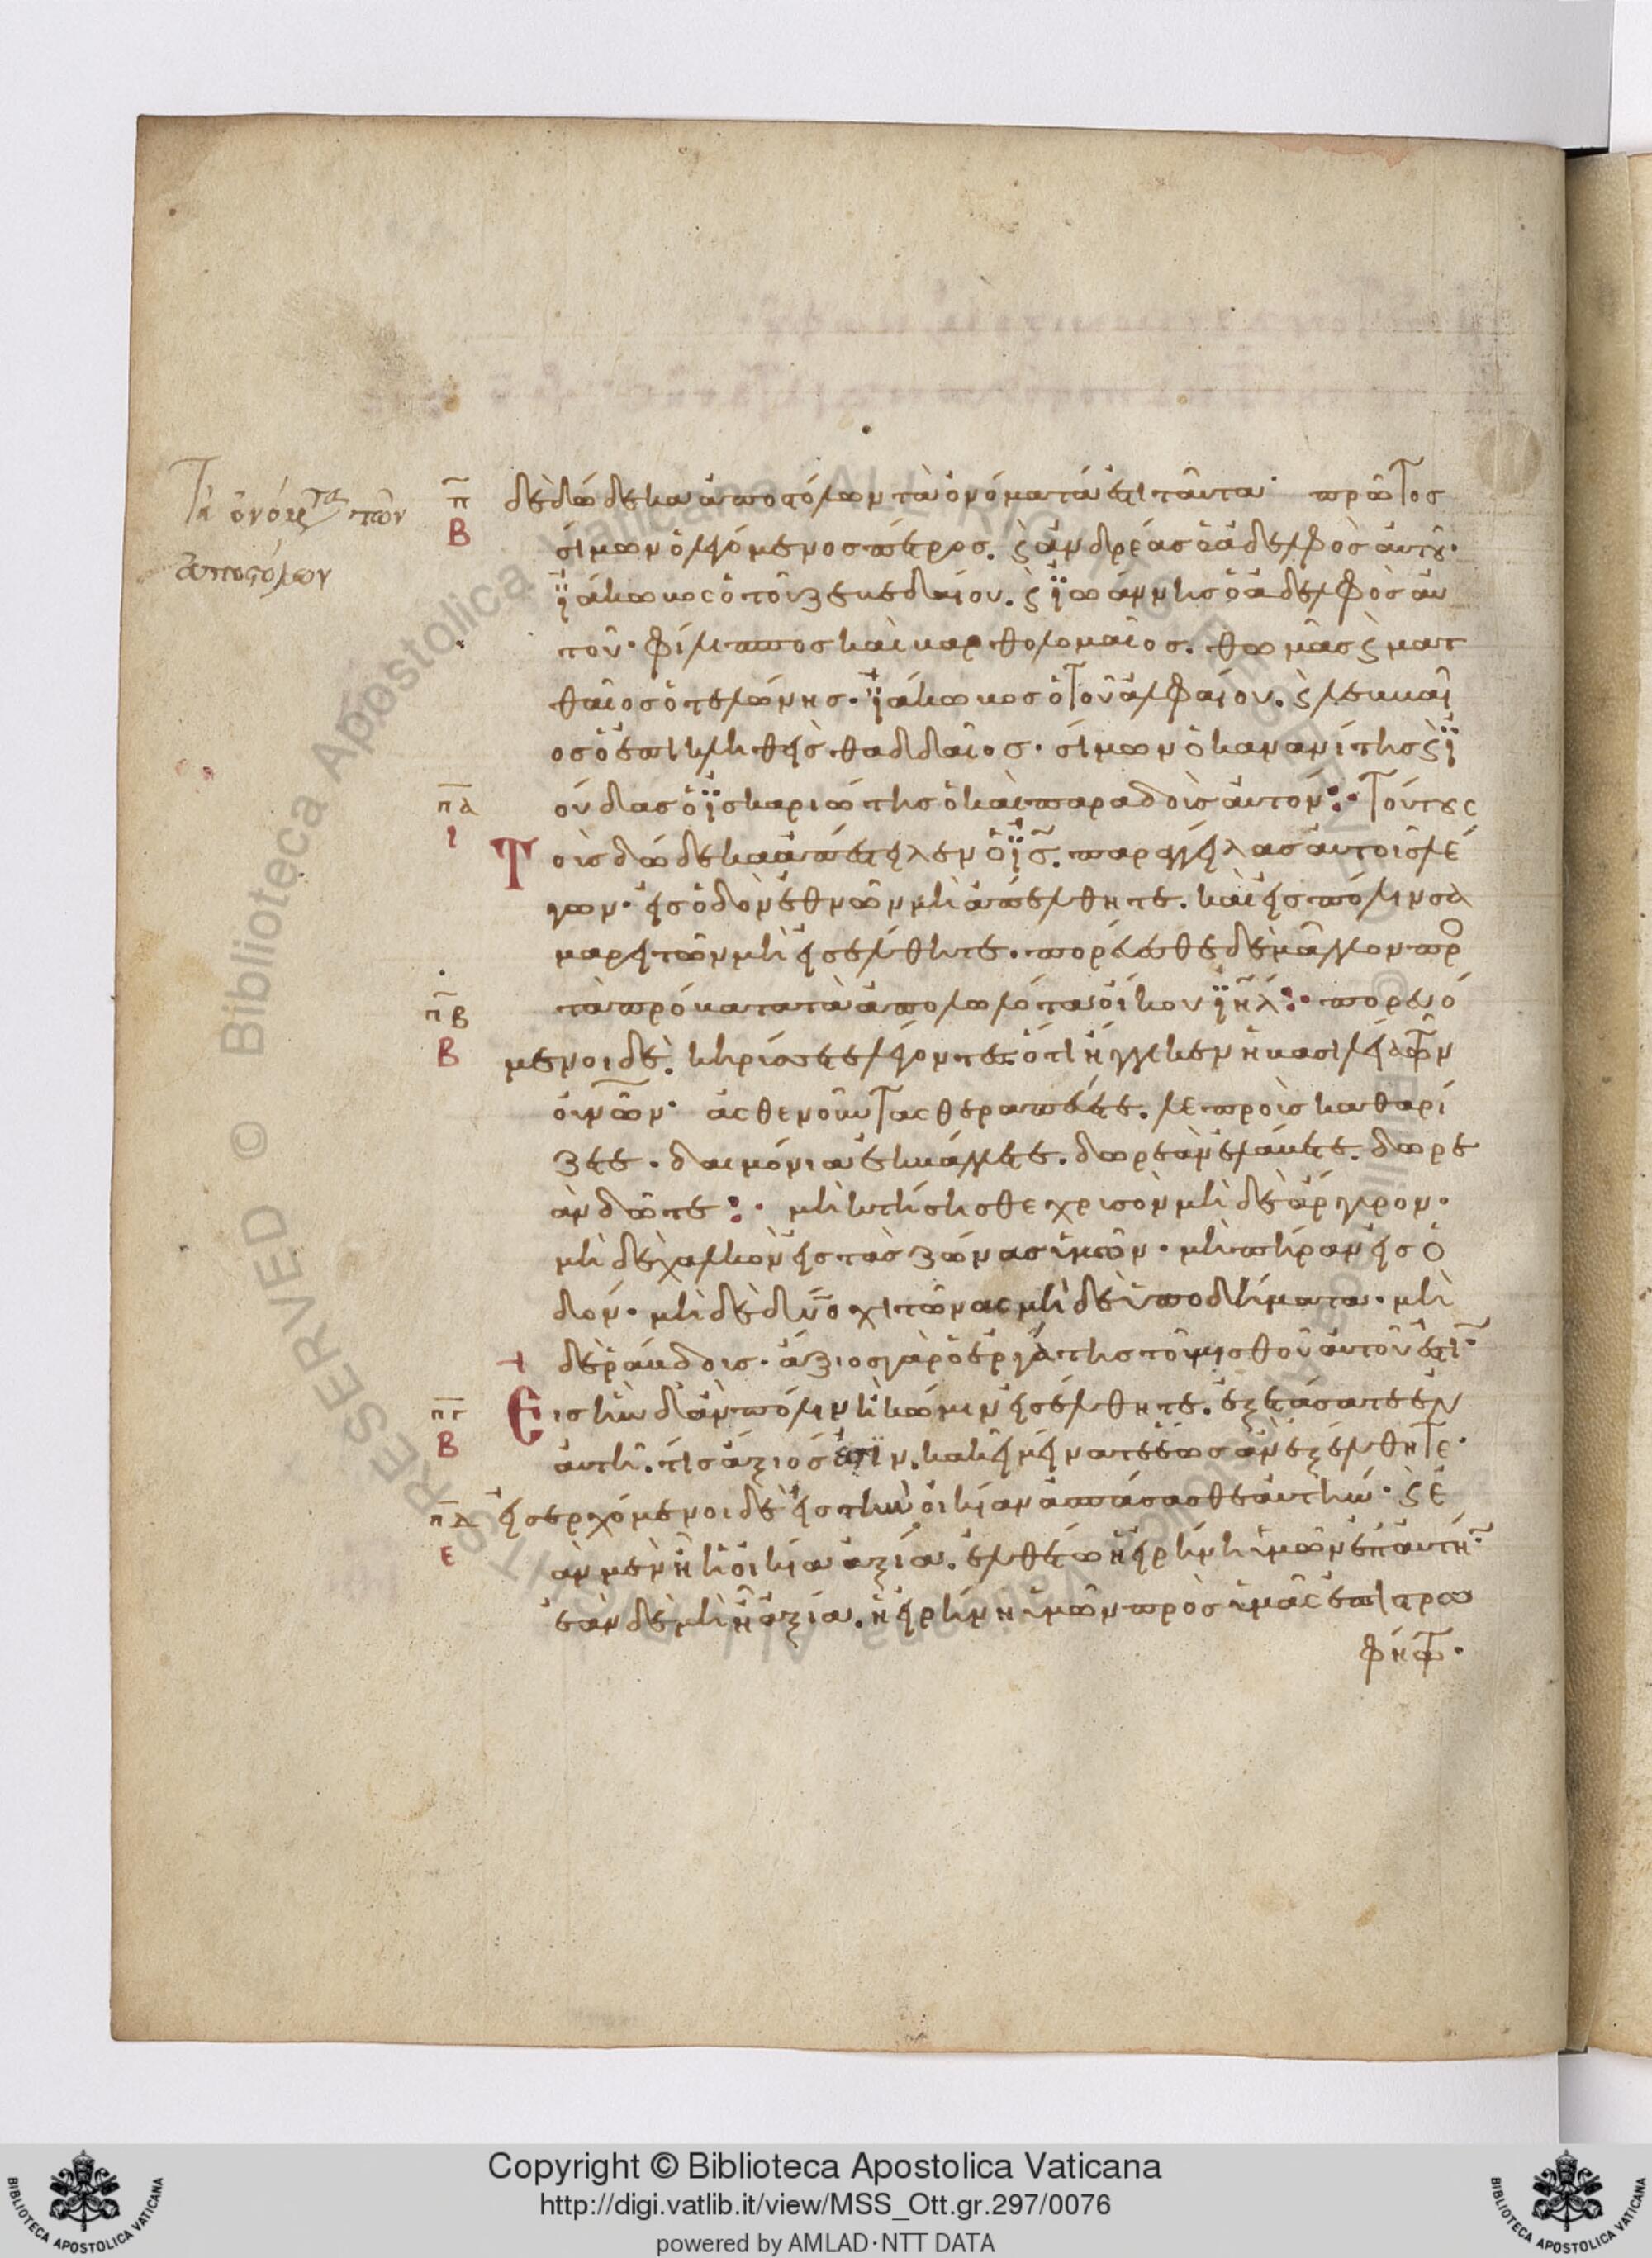 Τὰ ὀνόματα τῶν
ἀποστόλων
π
Β
δὲ δώδεκα ἀποστόλων τὰ ὀνόματά ἐστι ταῦτα· πρῶτος
σίμων ὁ λεγόμενος πέτρος. ϗ ἀνδρέας ὁ ἀδελφὸς αὐτοῦ·
ϊάκωβος ὁ τοῦ ζεβεδαίου. ϗ ϊωάννης ὁ ἀδελφὸς αὐ
τοῦ· φίλιππος καὶ βαρθολομαῖος. θωμᾶς ϗ ματ
θαῖος ὁ τελώνης· ϊάκωβος ὁ τοῦ ἀλφαίου. ϗ λεββαῖ
ος ὁ ἐπικληθεὶς θαδδαῖος· σίμων ὁ κανανίτης ϗ ϊ
πα
ι
ούδας ὁ ϊσκαριώτης ὁ καὶ παραδοὺς αὐτόν: · Τούτους
Τοὺς δώδεκα ἀπέστειλεν ὁ ϊς. παραγγείλας αὐτοῖς λέ
γων· εἰς ὁδὸν ἐθνῶν μὴ ἀπέλθητε. καὶ εἰς πόλιν σα
μαρειτῶν μὴ εἰσέλθητε. πορεύεσθε δὲ μᾶλλον πρὸς
πβ
Β
τὰ πρόβατα τὰ ἀπολωλότα οἴκου ϊηλ: · πορευό
μενοι δὲ. κηρύσσετε λέγοντες ὅτι ἤγγικεν ἡ βασιλεία τῶν
οὐνῶν· ἀσθενοῦντας θεραπεύετε. λεπροὺς καθαρί
ζετε. δαιμόνια ἐκβάλλετε. δωρεὰν ἐλάβετε. δωρε
ὰν δῶτε: · μὴ κτήσησθε χρυσὸν μὴ δὲ ἄργυρον·
μὴ δὲ χαλκὸν εἰς τὰς ζώνας ὑμῶν· μὴ πήραν εἰς ὁ
δόν· μὴ δὲ δύο χιτῶνας μὴ δὲ ὑποδήματα· μὴ
δὲ ῥάβδους· ἄξιος γὰρ ὁ ἐργάτης τοῦ μισθοῦ αὐτοῦ ἐστι·
πγ
Β
Εἰς ἣν δ' ἂν πόλιν ἢ κώμην εἰσέλθητε. ἐξετάσατε ἐν
αὐτῇ. τίς ἄξιός ἐστιν. κακεῖ μείνατε ἕως ἂν ἐξέλθητε·
πδ
Ε
εἰσερχόμενοι δὲ εἰς τὴν οἰκίαν ἀσπάσασθε αὐτήν· ϗ ἐ
ὰν μὲν ᾖ ἡ οἰκία ἀξία. ἐλθέτω ἡ εἰρήνη ὑμῶν ἐπ' αὐτή·
ἐὰν δὲ μὴ ᾖ ἀξία. ἡ εἰρήνη ὑμῶν πρὸς ὑμᾶς ἐπιστρα
φήτω.
Copyright © Biblioteca Apostolica Vaticana
http://digi.vatlib.it/view/MSS_Ott.gr.297/0076
powered by AMLAD·NTT DATA